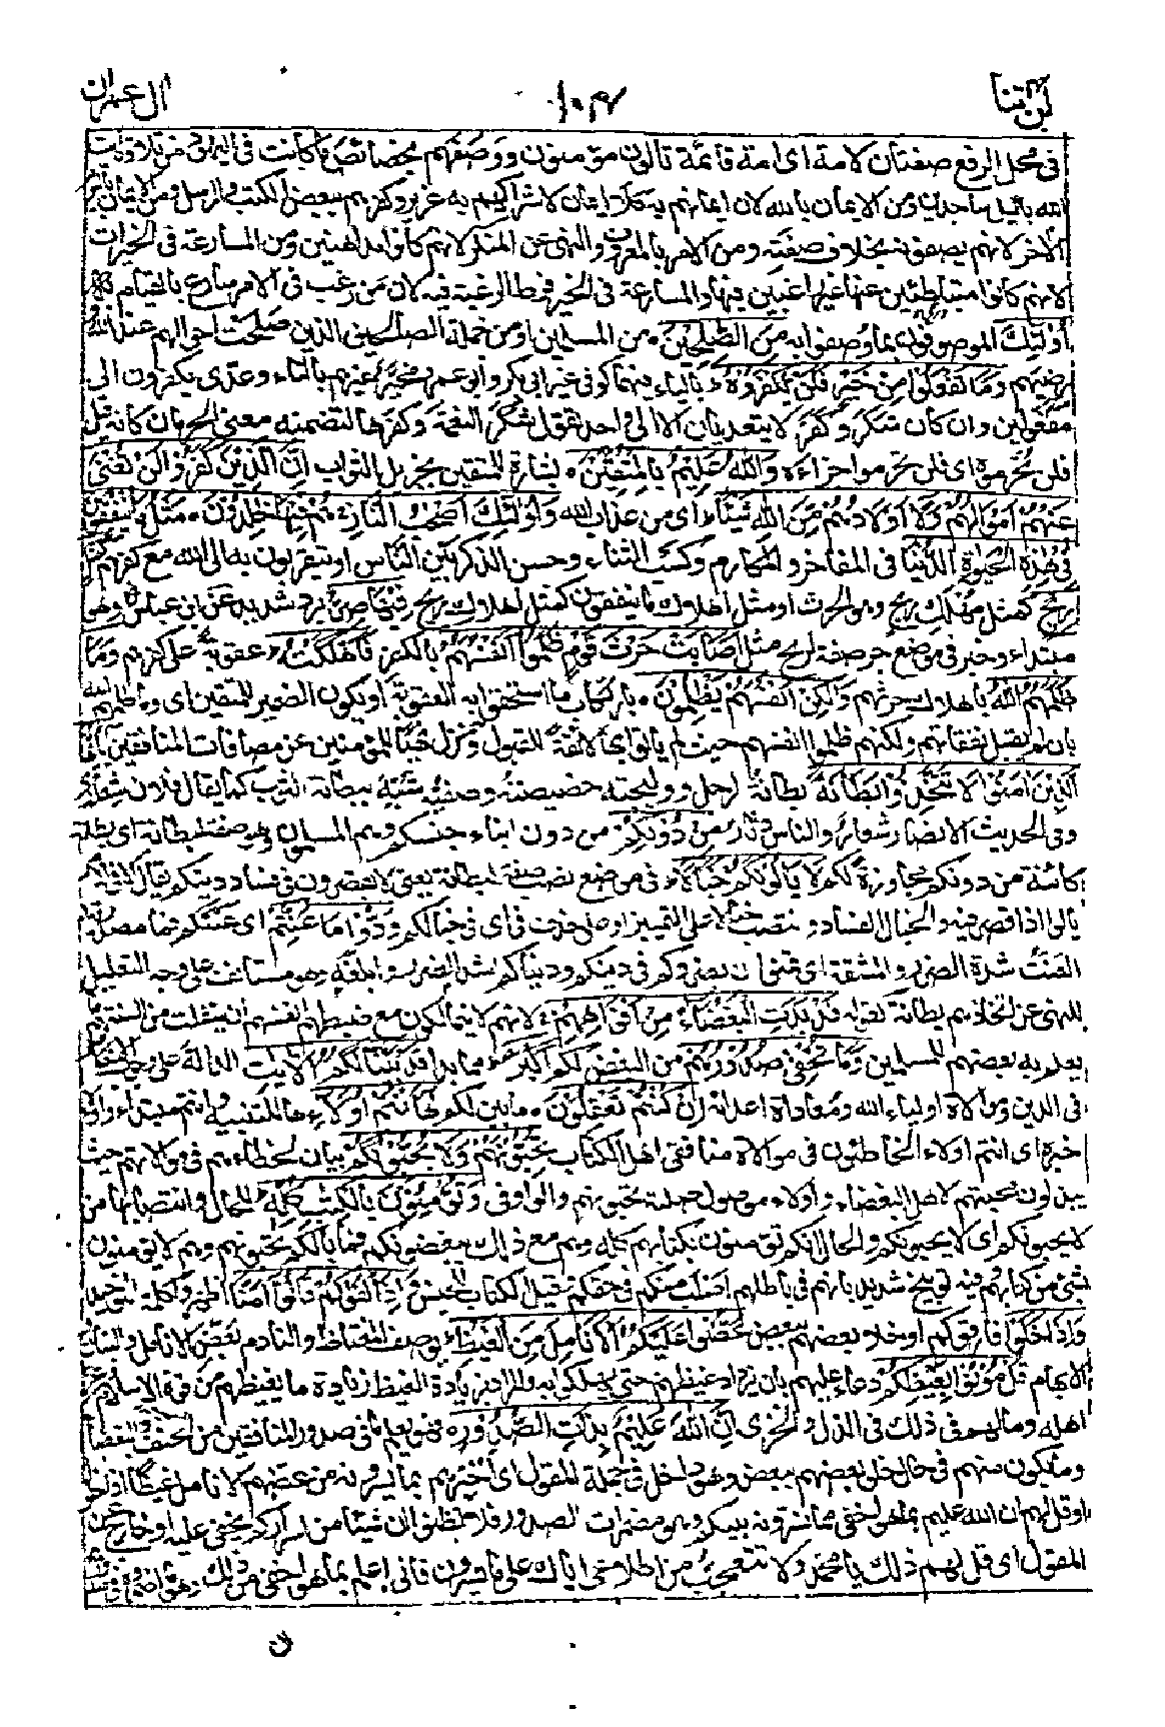 لن تنا ١٠٤ ال عمران
فى محل الرفع صفتان لامة اى امة قائمة تالون مؤمنون ووصفهم بخصائص ما كانت فى اليهود من تلاوة ايات
الله بالليل ساجدين ومن الايمان بالله لان ايمانهم به كلا ايمان لاشراكهم به عزير وكفرهم ببعض الكتب والرسل ومن الايمان باليوم
الآخر لانهم يصفونه بخلاف صفته ومن الامر بالمعروف والنهى عن المنكر لانهم كانوا مداهنين ومن المسارعة فى الخيرات
لانهم كانوا متباطئين عنها غير راغبين فيها والمسارعة فى الخير فرط الرغبة فيه لان من رغب فى الامر سارع بالقيام به
أُولٰئِكَ الموصوفون بما وصفوا به مِنَ الصّٰلِحِيْنَ من المسلمين او من جملة الصالحين الذين صلحت احوالهم عند الله
رضيهم وَمَا يَفْعَلُوْا مِنْ خَيْرٍ فَلَنْ يُّكْفَرُوْهُ بالياء فيهما كوفى غير ابى بكر وابو عمرو مخير غيرهم بالتاء وعدى يكفروه الى
مفعولين وان كان شكر وكفر لا يتعديان الا الى واحد تقول شكر النعمة وكفرها لتضمنه معنى الحرمان كانه قيل
فلن تحرموه اى فلن تحرموا جزاءه وَاللّٰهُ عَلِيْمٌ بِالْمُتَّقِيْنَ بشارة للمتقين بجزيل الثواب اِنَّ الَّذِيْنَ كَفَرُوْا لَنْ تُغْنِىَ
عَنْهُمْ اَمْوَالُهُمْ وَلَا اَوْلَادُهُمْ مِّنَ اللّٰهِ شَيْئًا اى من عذاب الله وَاُولٰئِكَ اَصْحٰبُ النَّارِ هُمْ فِيْهَا خٰلِدُوْنَ مَثَلُ مَا يُنْفِقُوْنَ
فِىْ هٰذِهِ الْحَيٰوةِ الدُّنْيَا فى المفاخر والمكارم وكسب الثناء وحسن الذكر بين الناس او يتقربون به الى الله مع كفرهم كَمَثَلِ
رِيْحٍ كمثل مهلك ريح وهو الحرث او مثل اهلاك ما ينفقون كمثل اهلاك ريح فِيْهَا صِرٌّ برد شديد عن ابن عباس وهو
مبتدأ وخبر فى موضع جر صفة لريح مثل اَصَابَتْ حَرْثَ قَوْمٍ ظَلَمُوْا اَنْفُسَهُمْ بالكفر فَاَهْلَكَتْهُ عقوبة على كفرهم وَمَا
ظَلَمَهُمُ اللّٰهُ باهلاك حرثهم وَلٰكِنْ اَنْفُسَهُمْ يَظْلِمُوْنَ بارتكاب ما استحقوا به العقوبة او يكون الضمير للمنفقين اى وما ظلمهم الله
بان لم يقبل نفقاتهم ولكنهم ظلموا انفسهم حيث لم ياتوا بها لائقة للقبول ونزل نهيا للمؤمنين عن مصافات المنافقين يٰاَيُّهَا
الَّذِيْنَ اٰمَنُوْا لَا تَتَّخِذُوْا بِطَانَةً بطانة الرجل ووليجته خصيصته وصفيه شبه ببطانة الثوب كما يقال فلان شعارى
وفى الحديث الانصار شعار والناس دثار مِنْ دُوْنِكُمْ من دون ابناء جنسكم وهم المسلمون وهو صفة لبطانة اى بطانة
كائنة من دونكم مجاوزة لكم لَا يَاْلُوْنَكُمْ خَبَالًا فى موضع نصب صفة لبطانة يعنى لا يقصرون فى فساد دينكم يقال الا فى الامر
يالو اذا قصر فيه والخبال الفساد وانتصب خبالا على التمييز او على حذف فى اى فى خبالكم وَدُّوْا مَا عَنِتُّمْ اى عنتكم فما مصدرية
العنت شدة الضرر والمشقة اى تمنوا ان يضروكم فى دينكم ودنياكم اشد الضرر وابلغه وهو مستانف على وجه التعليل
للنهى عن اتخاذهم بطانة كقوله قَدْ بَدَتِ الْبَغْضَاءُ مِنْ اَفْوَاهِهِمْ لانهم لا يتمالكون مع ضبطهم انفسهم ان ينفلت من السنتهم ما
يعلم به بغضهم للمسلمين وَمَا تُخْفِىْ صُدُوْرُهُمْ من البغض لكم اَكْبَرُ مما بدا قَدْ بَيَّنَّا لَكُمُ الْاٰيٰتِ الدالة على وجوب الاخلاص
فى الدين وموالاة اولياء الله ومعاداة اعدائه اِنْ كُنْتُمْ تَعْقِلُوْنَ ما بين لكم هٰا اَنْتُمْ اُولَاءِ ها للتنبيه وانتم مبتدأ واولاء
خبره اى انتم اولاء الخاطئون فى موالاة منافقى اهل الكتاب تُحِبُّوْنَهُمْ وَلَا يُحِبُّوْنَكُمْ بيان لخطائهم فى موالاتهم حيث
يبذلون محبتهم لاهل البغضاء واولاء موصول صلته تحبونهم والواو فى وَتُؤْمِنُوْنَ بِالْكِتٰبِ كُلِّهٖ للحال وانتصابها من
لا يحبونكم اى لا يحبونكم والحال انكم تؤمنون بكتابهم كله وهم مع ذلك يبغضونكم فما بالكم تحبونهم وهم لا يؤمنون
بشئ من كتابكم فيه توبيخ شديد بانهم فى باطلهم اصلب منكم فى حقكم وقيل الكتاب للجنس وَاِذَا لَقُوْكُمْ قَالُوْا اٰمَنَّا اظهروا كلمة التوحيد
وَاِذَا خَلَوْا فارقوكم او خلا بعضهم ببعض عَضُّوْا عَلَيْكُمُ الْاَنَامِلَ مِنَ الْغَيْظِ يوصف المغتاظ والنادم بعض الانامل والبنان و
الابهام قُلْ مُوْتُوْا بِغَيْظِكُمْ دعاء عليهم بان يزداد غيظهم حتى يهلكوا به والمراد بزيادة الغيظ زيادة ما يغيظهم من قوة الاسلام وعز
اهله وما لهم فى ذلك فى الذل والخزى اِنَّ اللّٰهَ عَلِيْمٌ بِذَاتِ الصُّدُوْرِ فهو يعلم ما فى صدور المنافقين من الحنق والبغضاء
وما يكون منهم فى حال خلو بعضهم ببعض وهو داخل فى جملة المقول اى اخبرهم بما يسرونه من عضهم الانامل غيظا اذا خلوا
او قل لهم ان الله عليم بما هو اخفى مما تسرونه بينكم وهو مضمرات الصدور فلا تظنوا ان شيئا من اسراركم يخفى عليه او خارج عن
المقول اى قل لهم ذلك يا محمد ولا تتعجب من اطلاعى اياك على ما يسرون فانى اعلم بما هو اخفى من ذلك وهو ما اضمروه فى